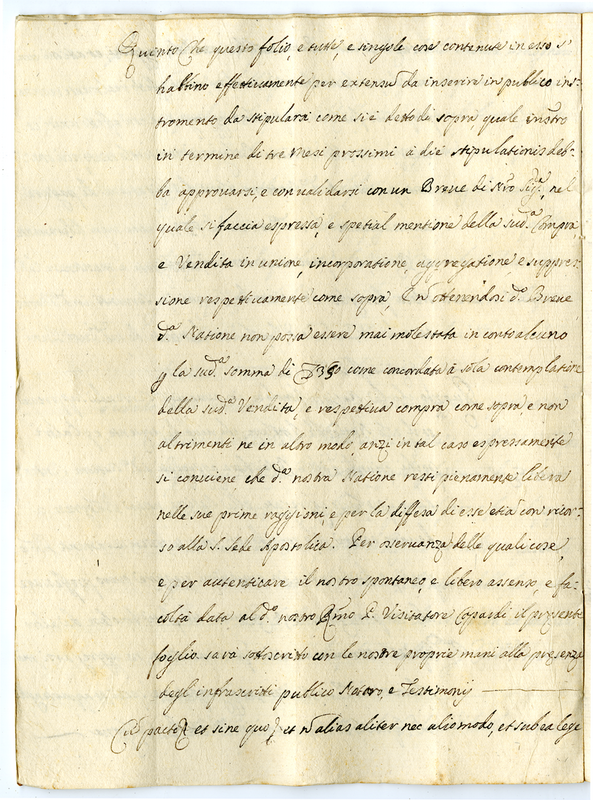 Quinto Che questo folio, e tutte, e singole cose contenute in esso s'
habbino effettivamente per extensũ da inserire in publico ins-
tromento da stipularsi come si è detto di sopra, quale instro
in termine di tre Mesi prossimi à die stipulationis deb-
ba approuarsi, e conualidarsi con un Breue di Nro Sigre, nel
quale si faccia espressa, e spetial mentione della sud.a Compra,
e Vendita in unione, incorporatione, aggregatione e suppres-
sione respettiuamente come sopra, E nõ ottenendosi d.o Breue
d.a Natione non possa essere mai molestata in conto alcuno
p la sud.a somma di 350 come concordata à sola contemplatione
della sud.a Vendita, e respettiua compra come sopra, e non
altrimenti ne in altro modo, anzi in tal caso espressamente
si conuiene, che d.a nostra Natione resti pienamente libera
nelle sue prime raggioni, e per la diffesa di esse etiã con ricor-
so alla S. Sede Apostolica. Per osseruanza delle quali cose,
e per autenticare il nostro spontaneo, e libero assenso, e fa-
coltà data al d.o nostro Rmo P. Visitatore il presente
foglio sarà sottoscritto con le nostre proprie mani alla presenza
degli infrascritti publico Notaro, e Testimonij
et sine quo et nõ alias aliter nec alio modo, et sub ea lege